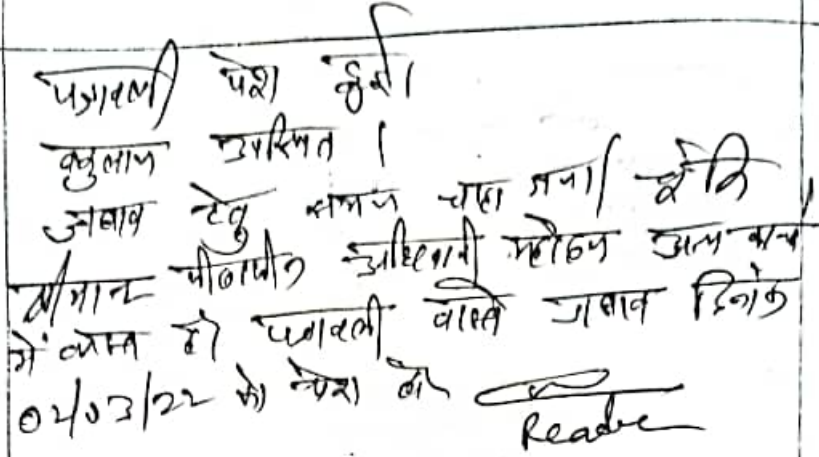 पत्रावली पेश हुई।
वकुलाय उपस्थित।
जवाब हेतु समय चाहा गया। चूँकि
श्रीमान पीठासीन अधिकारी महोदय अन्य कार्य
में व्यस्त है। पत्रावली वास्ते जवाब दिनांक
02/03/22 को पेश हो
Reader